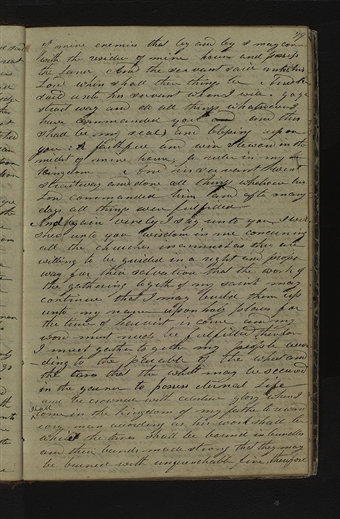 79
of mine enemies that by and by I may come
with the residue of mine house and possess
the land And the servant said unto his
Lord when shall these things be And he
said unto his servant when I will: go ye
straitway and do all things whatsoever I
have commanded you and this
shall be my seal and blessing upon
you: A faithful and wise steward in the
midst of mine house, a ruler in my
Kingdom And his servant went
straitway and done all things whatsoever his
Lord commanded him and after many
days all things were fulfilled
And again verily I say unto you I will
shew unto you wisdom in me concerning
all the churches inasmuch as they are
willing to be guided in a right and proper
way for their salvation that the work of
the gathering together of my saints may
continue that I may build them up
unto my name upon holy places for
the time of harvest is come and my
word must needs be fulfilled therefore
I must gather together my people according
to the parable of the wheat and
the tares that the wheat may be secured
in the garner to possess eternal life
and be crowned with celestial glory when I
shall
come in the kingdom of my father to reward
every man according as his work shall be
while the tares shall be bound in bundles
and their bands made strong that they may
be burned with unquenchable fire, therefore